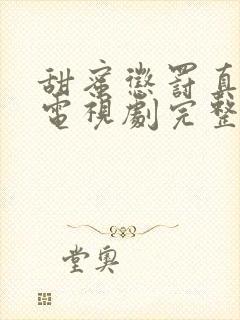 甜蜜懲罰真
電視劇完整
堂奧